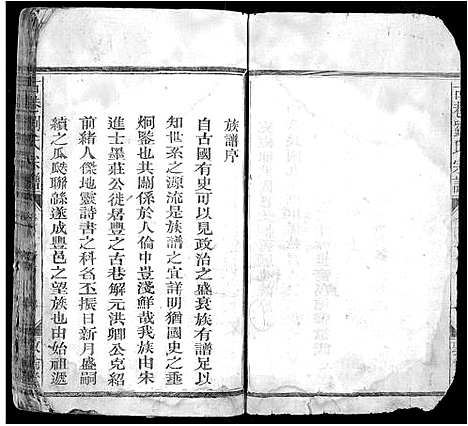 古巷劉氏宗譜
族譜序
自古國有史可以見政治之盛衰族有譜足以
知世系之源流是族譜之宜詳明猶國史之垂
炯鑒也其關係於人倫中豈淺鮮哉我族由朱
進士墨莊公徙居豐之古巷解元洪卿公克紹
前緒人傑地靈詩書之科名丕振日新月盛嗣
續之瓜瓞聯緜遂成豐邑之望族也由始祖遞
古巷劉氏宗譜